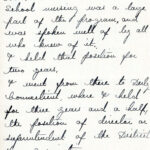 School nursing was a large
part of the program, and
was spoken well of by all
who knew of it.
I held this position for
two years.
I went from there to
Connecticut where I held
for three years and a half,
the position of director or
superintendent of the District